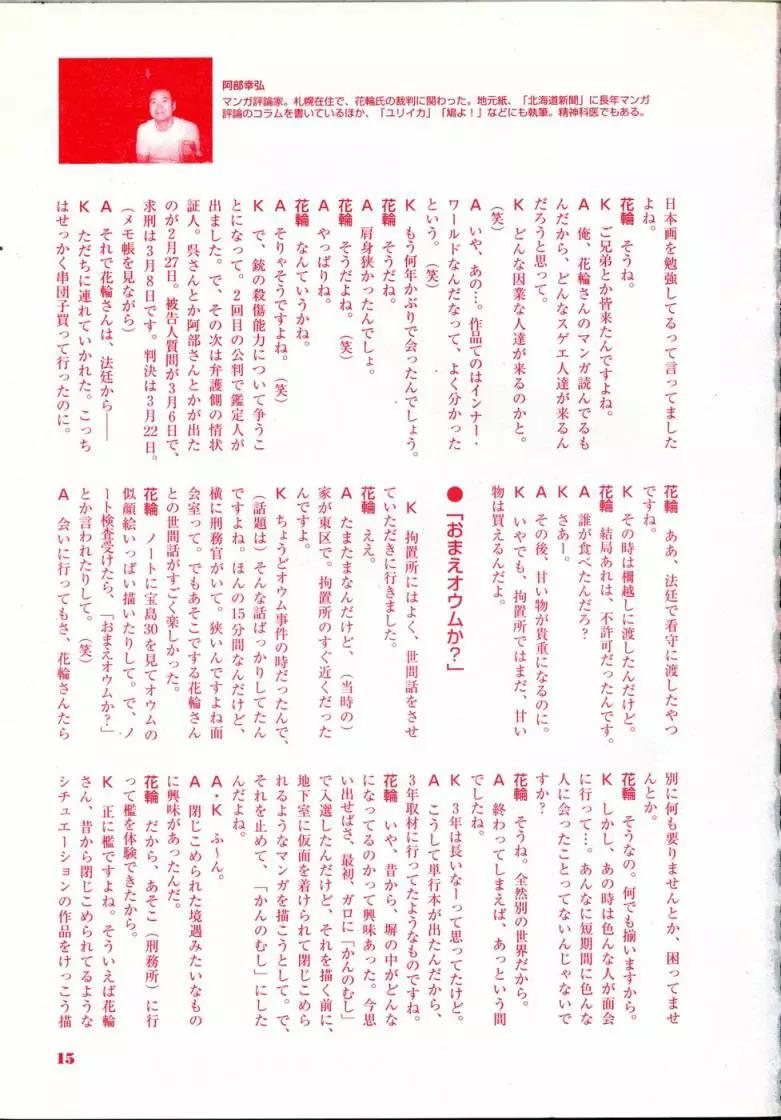 阿部幸弘
マンガ評論家。札幌在住で、花輪氏の裁判に関わった。地元紙、「北海道新聞」に長年マンガ
評論のコラムを書いているほか、「ユリイカ」「鳩よ！」などにも執筆。精神科医でもある。
日本画を勉強してるって言ってました
よね。
花輪　そうね。
K　ご兄弟とか皆来たんですよね。
A　俺、花輪さんのマンガ読んでるも
んだから、どんなスゲエ人達が来るん
だろうと思って。
K　どんな因業な人達が来るのかと。
（笑）
A　いや、あの…。作品てのはインナー・
ワールドなんだなって、よく分かった
という。（笑）
K　もう何年かぶりで会ったんでしょう。
花輪　そうだね。
A　肩身狭かったんでしょ。
花輪　そうだよね。（笑）
A　やっぱりね。
花輪　なんていうかね。
A　そりゃそうですよね。（笑）
K　で、銃の殺傷能力について争うこ
とになって。2回目の公判で鑑定人が
出ました。で、その次は弁護側の情状
証人。呉さんとか阿部さんとかが出た
のが2月27日。被告人質問が3月6日で、
求刑は3月8日です。判決は3月22日。
（メモ帳を見ながら）
A　それで花輪さんは、法廷から——
K　ただちに連れていかれた。こっち
はせっかく串団子買って行ったのに。
花輪　ああ、法廷で看守に渡したやつ
ですね。
K　その時は柵越しに渡したんだけど。
花輪　結局あれは、不許可だったんです。
A　誰が食べたんだろ？
K　さあー。
A　その後、甘い物が貴重になるのに。
K　いやでも、拘置所ではまだ、甘い
物は買えるんだよ。
●「おまえオウムか？」
K　拘置所にはよく、世間話をさせ
ていただきに行きました。
花輪　ええ。
A　たまたまなんだけど、（当時の）
家が東区で。拘置所のすぐ近くだった
んですよ。
K　ちょうどオウム事件の時だったんで、
（話題は）そんな話ばっかりしてたん
ですよね。ほんの15分間なんだけど、
横に刑務官がいて。狭いんですよね面
会室って。でもあそこでする花輪さん
との世間話がすごく楽しかった。
花輪　ノートに宝島30を見てオウムの
似顔絵いっぱい描いたりして。で、ノ
ート検査受けたら、「おまえオウムか？」
とか言われたりして。（笑）
A　会いに行ってもさ、花輪さんたら
別に何も要りませんとか、困ってませ
んとか。
花輪　そうなの。何でも揃いますから。
K　しかし、あの時は色んな人が面会
に行って…。あんなに短期間に色んな
人に会ったことってないんじゃないで
すか？
花輪　そうね。全然別の世界だから。
A　終わってしまえば、あっという間
でしたね。
K　3年は長いなーって思ってたけど。
A　こうして単行本が出たんだから、
3年取材に行ってたようなものですね。
花輪　いや、昔から、塀の中がどんな
になってるのかって興味あった。今思
い出せばさ、最初、ガロに「かんのむし」
で入選したんだけど、それを描く前に、
地下室に仮面を着けられて閉じこめら
れるようなマンガを描こうとして。で、
それを止めて、「かんのむし」にした
んだよね。
A・K　ふ〜ん。
A　閉じこめられた境遇みたいなもの
に興味があったんだ。
花輪　だから、あそこ（刑務所）に行
って檻を体験できたから。
K　正に檻ですよね。そういえば花輪
さん、昔から閉じこめられてるような
シチュエーションの作品をけっこう描
15